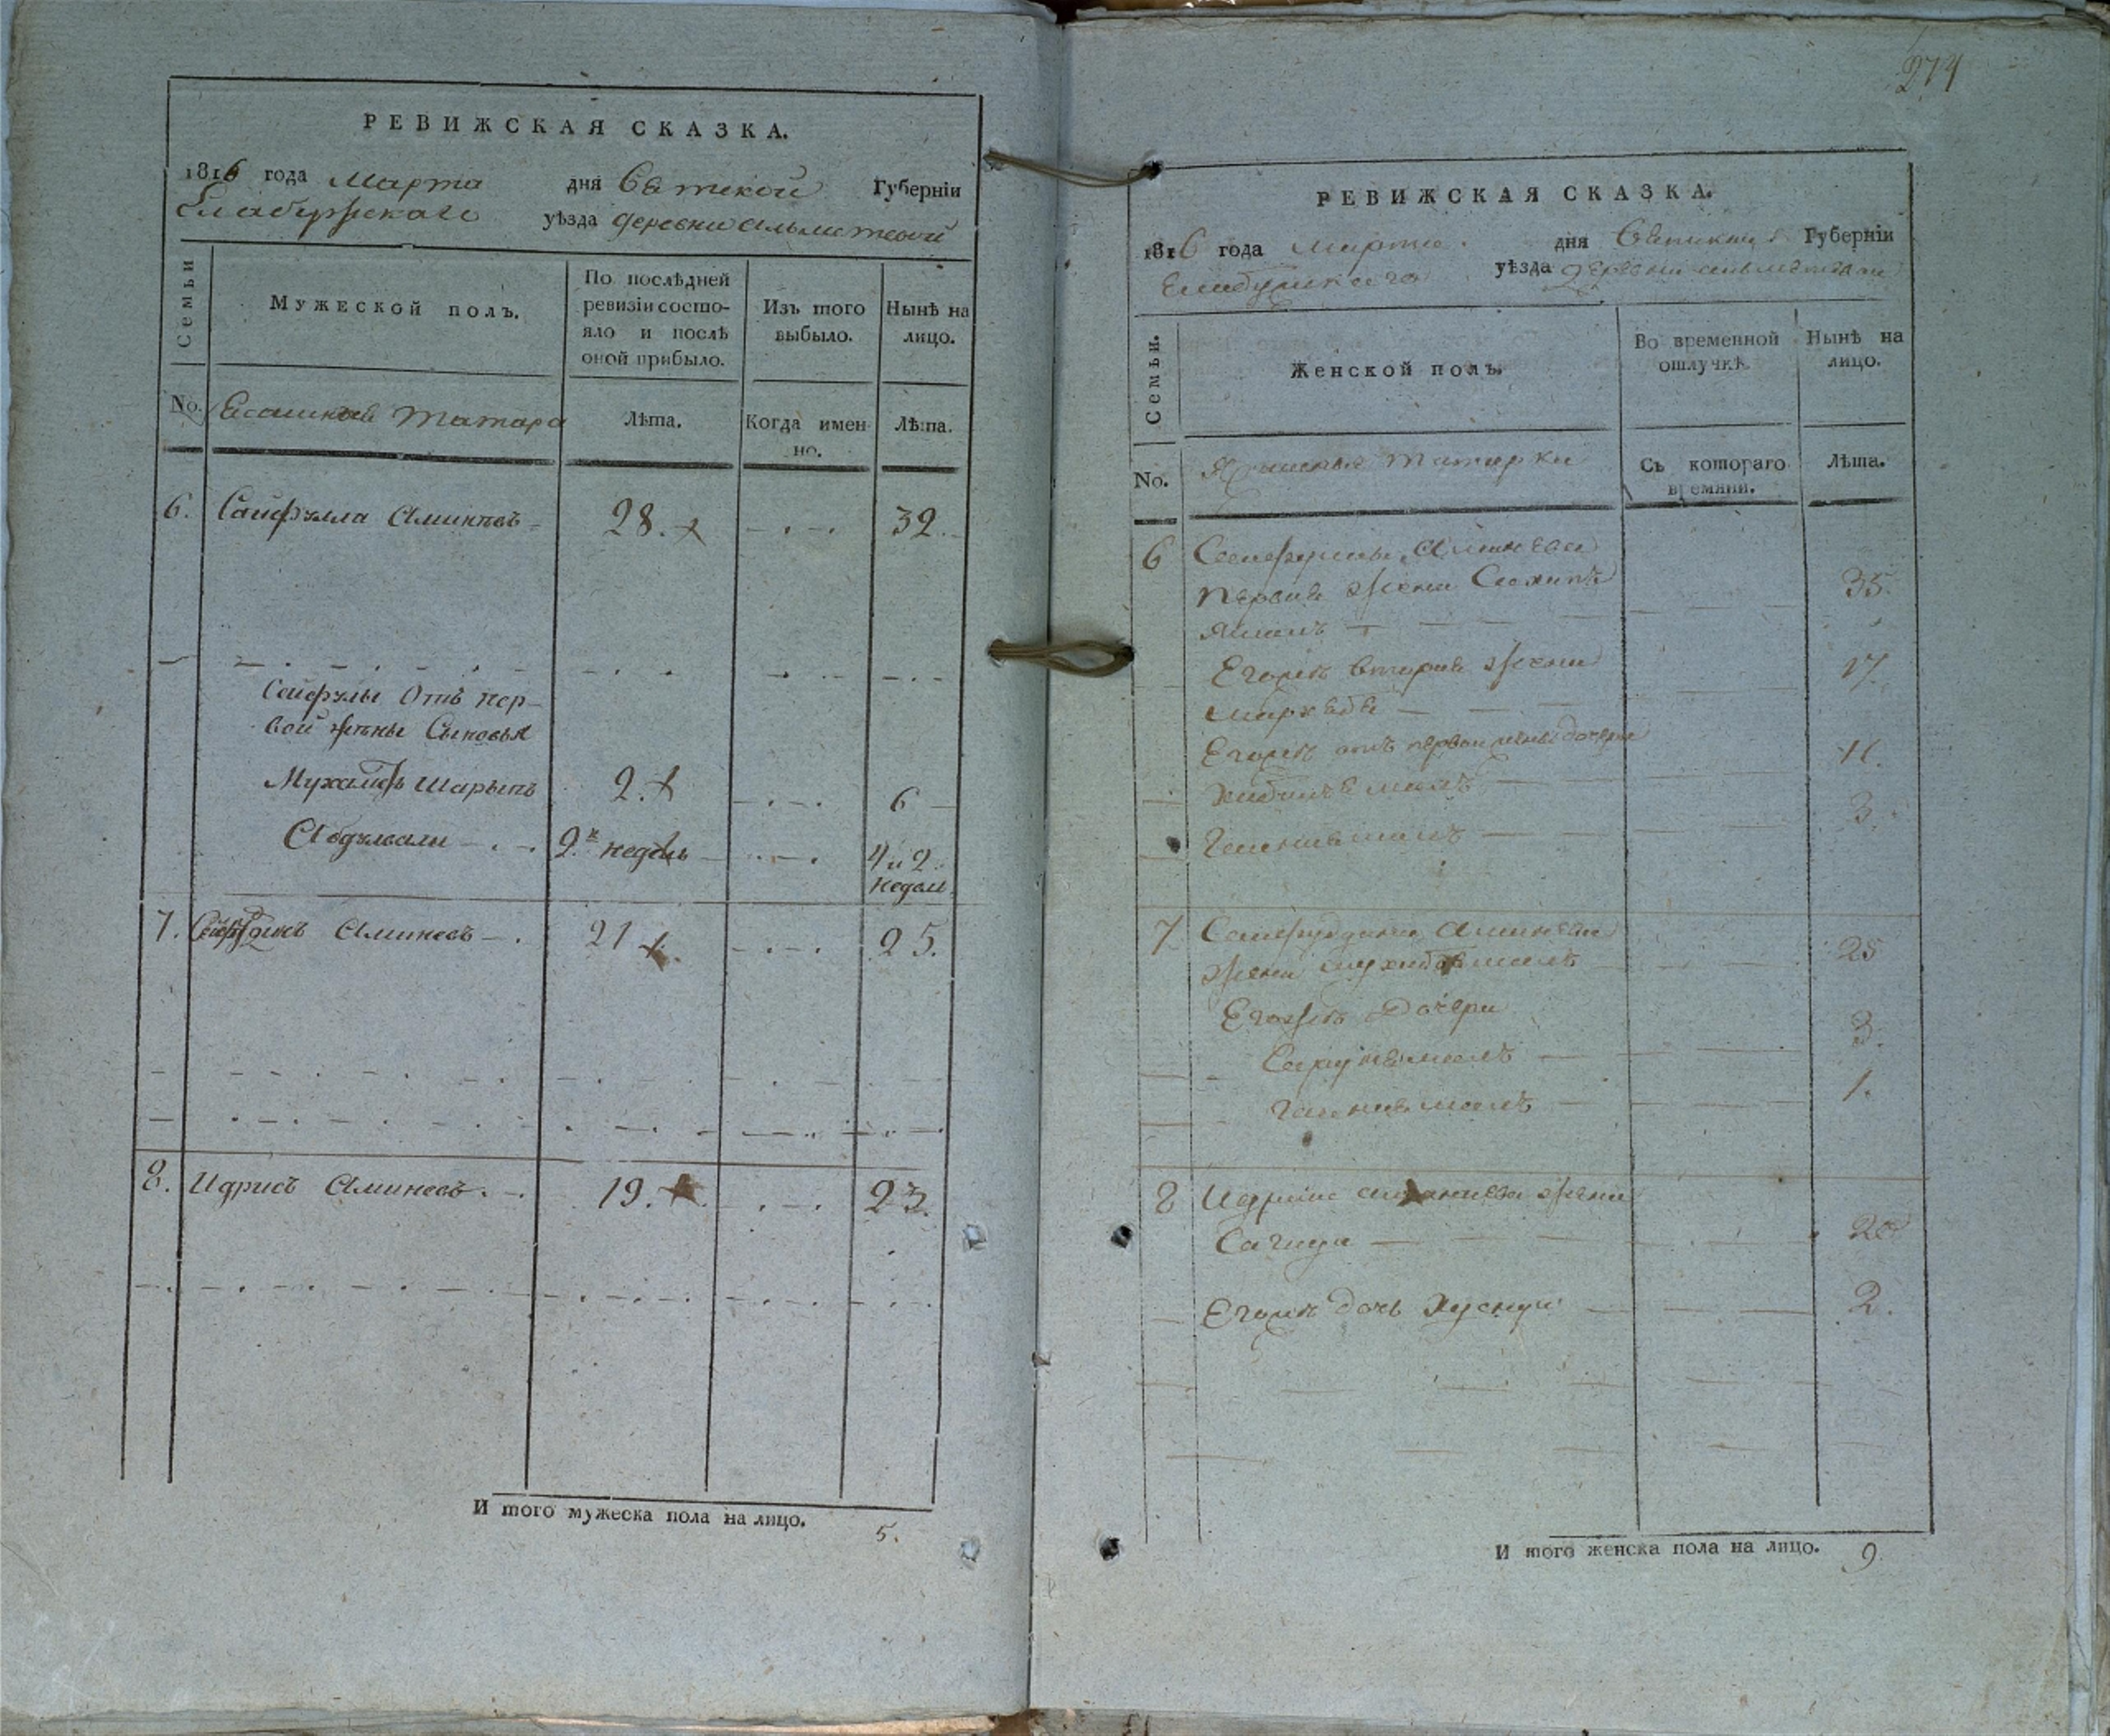 РЕВИЖСКАЯ СКАЗКА.
1816 года Марта дня Вятской Губерніи
Елабужскаго уѣзда деревни Альметевой
Семьи
Мужеской полъ.
По послѣдней ревизіи состояло и послѣ оной прибыло.
Изъ того выбыло.
Нынѣ на лицо.
No. Ясашныя Татара
Лѣта.
Когда именно.
Лѣта.
6. Сайфулла Аминевъ 28. 32.
Сейфулы Отъ пер-
вой жены Сыновья
Мухаметь Шарыпъ 2. 6
Абдулвали 2 недель 4 и 2 недели
7. Аминевъ 21 25.
8. Идрисъ Аминевъ 19. 23.
И того мужеска пола на лицо. 5.
274
РЕВИЖСКАЯ СКАЗКА.
1816 года марта дня Вятской Губерніи
Елабужскаго уѣзда деревни
Семьи.
Женской полъ.
Во временной отлучкѣ.
Нынѣ на лицо.
No. Ясашныя татарки
Съ котораго времяни.
Лѣта.
6 Сейфулы Аминева
первая жена 35.
Егожъ вторая жена 17.
Егожъ отъ первой жены дочери
11.
3.
7 Сейфуддина Аминева
жена 25
Егожъ Дочери
3.
1.
8 Идриса жена
Сагида 20
Егожъ дочь Хуснуи 2.
И того женска пола на лицо. 9.